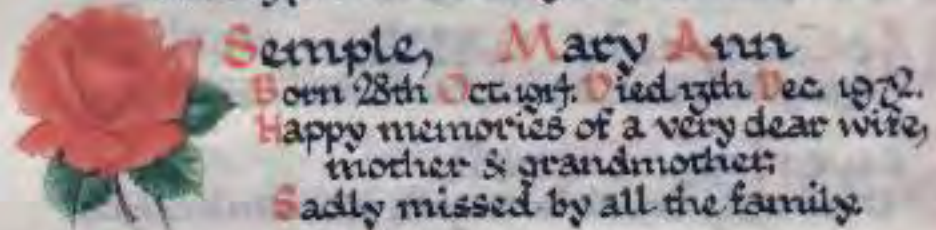 Semple, Mary Ann
Born 28th Oct. 1914. Died 13th Dec. 1972.
Happy memories of a very dear wife,
mother & grandmother;
Sadly missed by all the family.